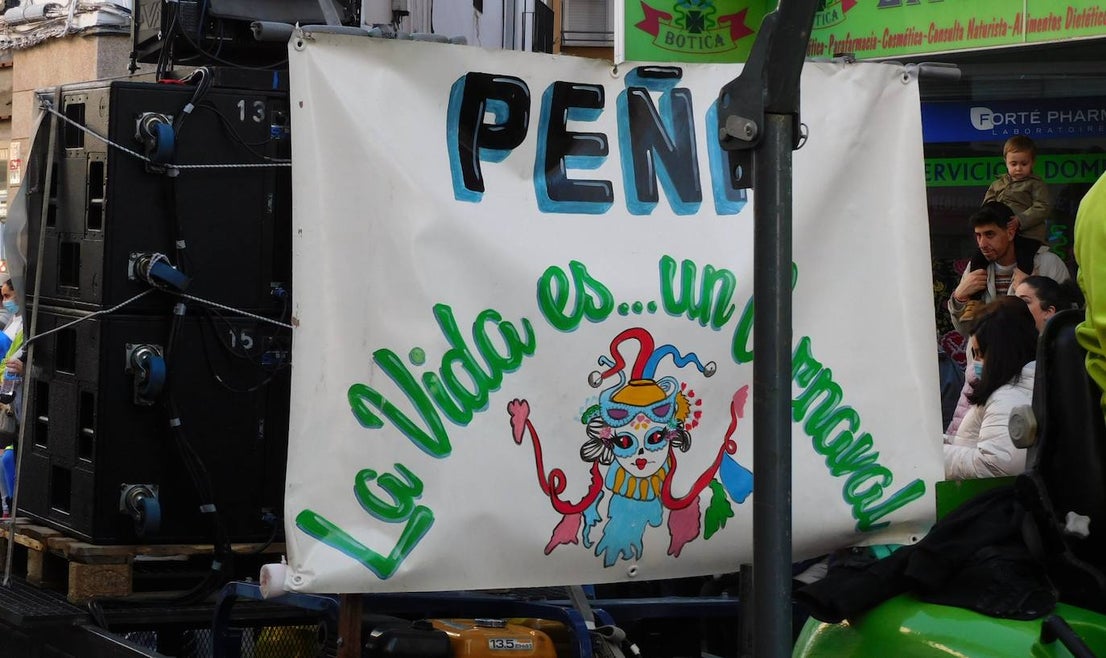 BOTICA
Parafarmacia-Cosmética-Consulta Naturista-Alimentos Dietétic
FORTÉ PHARM
LABORATOIRE
SERVICIO DOMI
13
15
PEÑA
La Vida es...un Carnaval
13.5